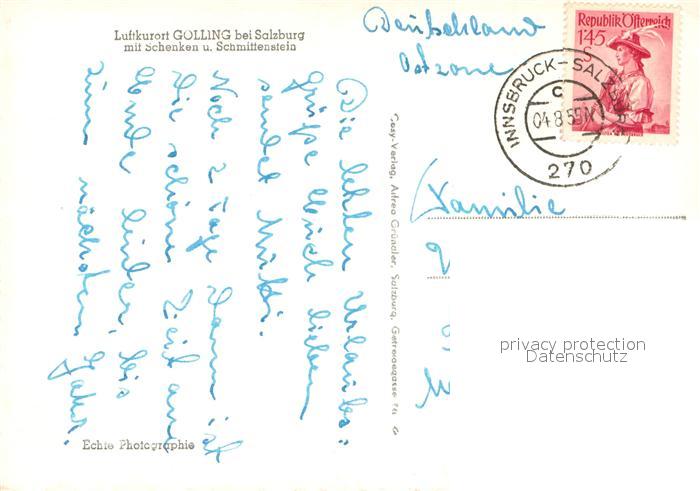 Luftkurort GOLLING bei Salzburg
mit Schenken u. Schmittenstein
Die letzten Urlaubs-
grüße Euch lieben
sendet
Noch 2 Tage dann ist
die schöne Zeit am
Ende leider, bis
zum nächsten Jahr.
Echte Photographie
Cosy-Verlag, Alfred Gründler, Salzburg, Getreidegasse
Deutschland
Ostzone
Republik Österreich
1'45
INNSBRUCK-SALZBURG
c
04.8.55
270
Familie
privacy protection
Datenschutz